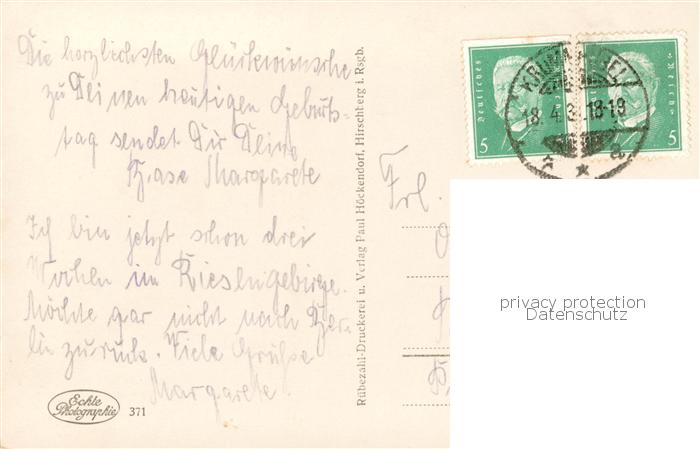 Die herzlichsten Glückwünsche
zu Deinen heutigen Geburts-
tag sendet Dir Deine
Base Margarete
Ich bin jetzt schon drei
Wochen im Riesengebirge.
Möchte gar nicht nach Ber-
lin zurück. Viele Grüße
Margarete.
Echte
Photographie
371
Rübezahl-Druckerei u. Verlag Paul Höckendorf, Hirschberg i. Rsgb.
Frl.
Deutsches Reich
5
5
18.4.3 18-19
a
privacy protection
Datenschutz